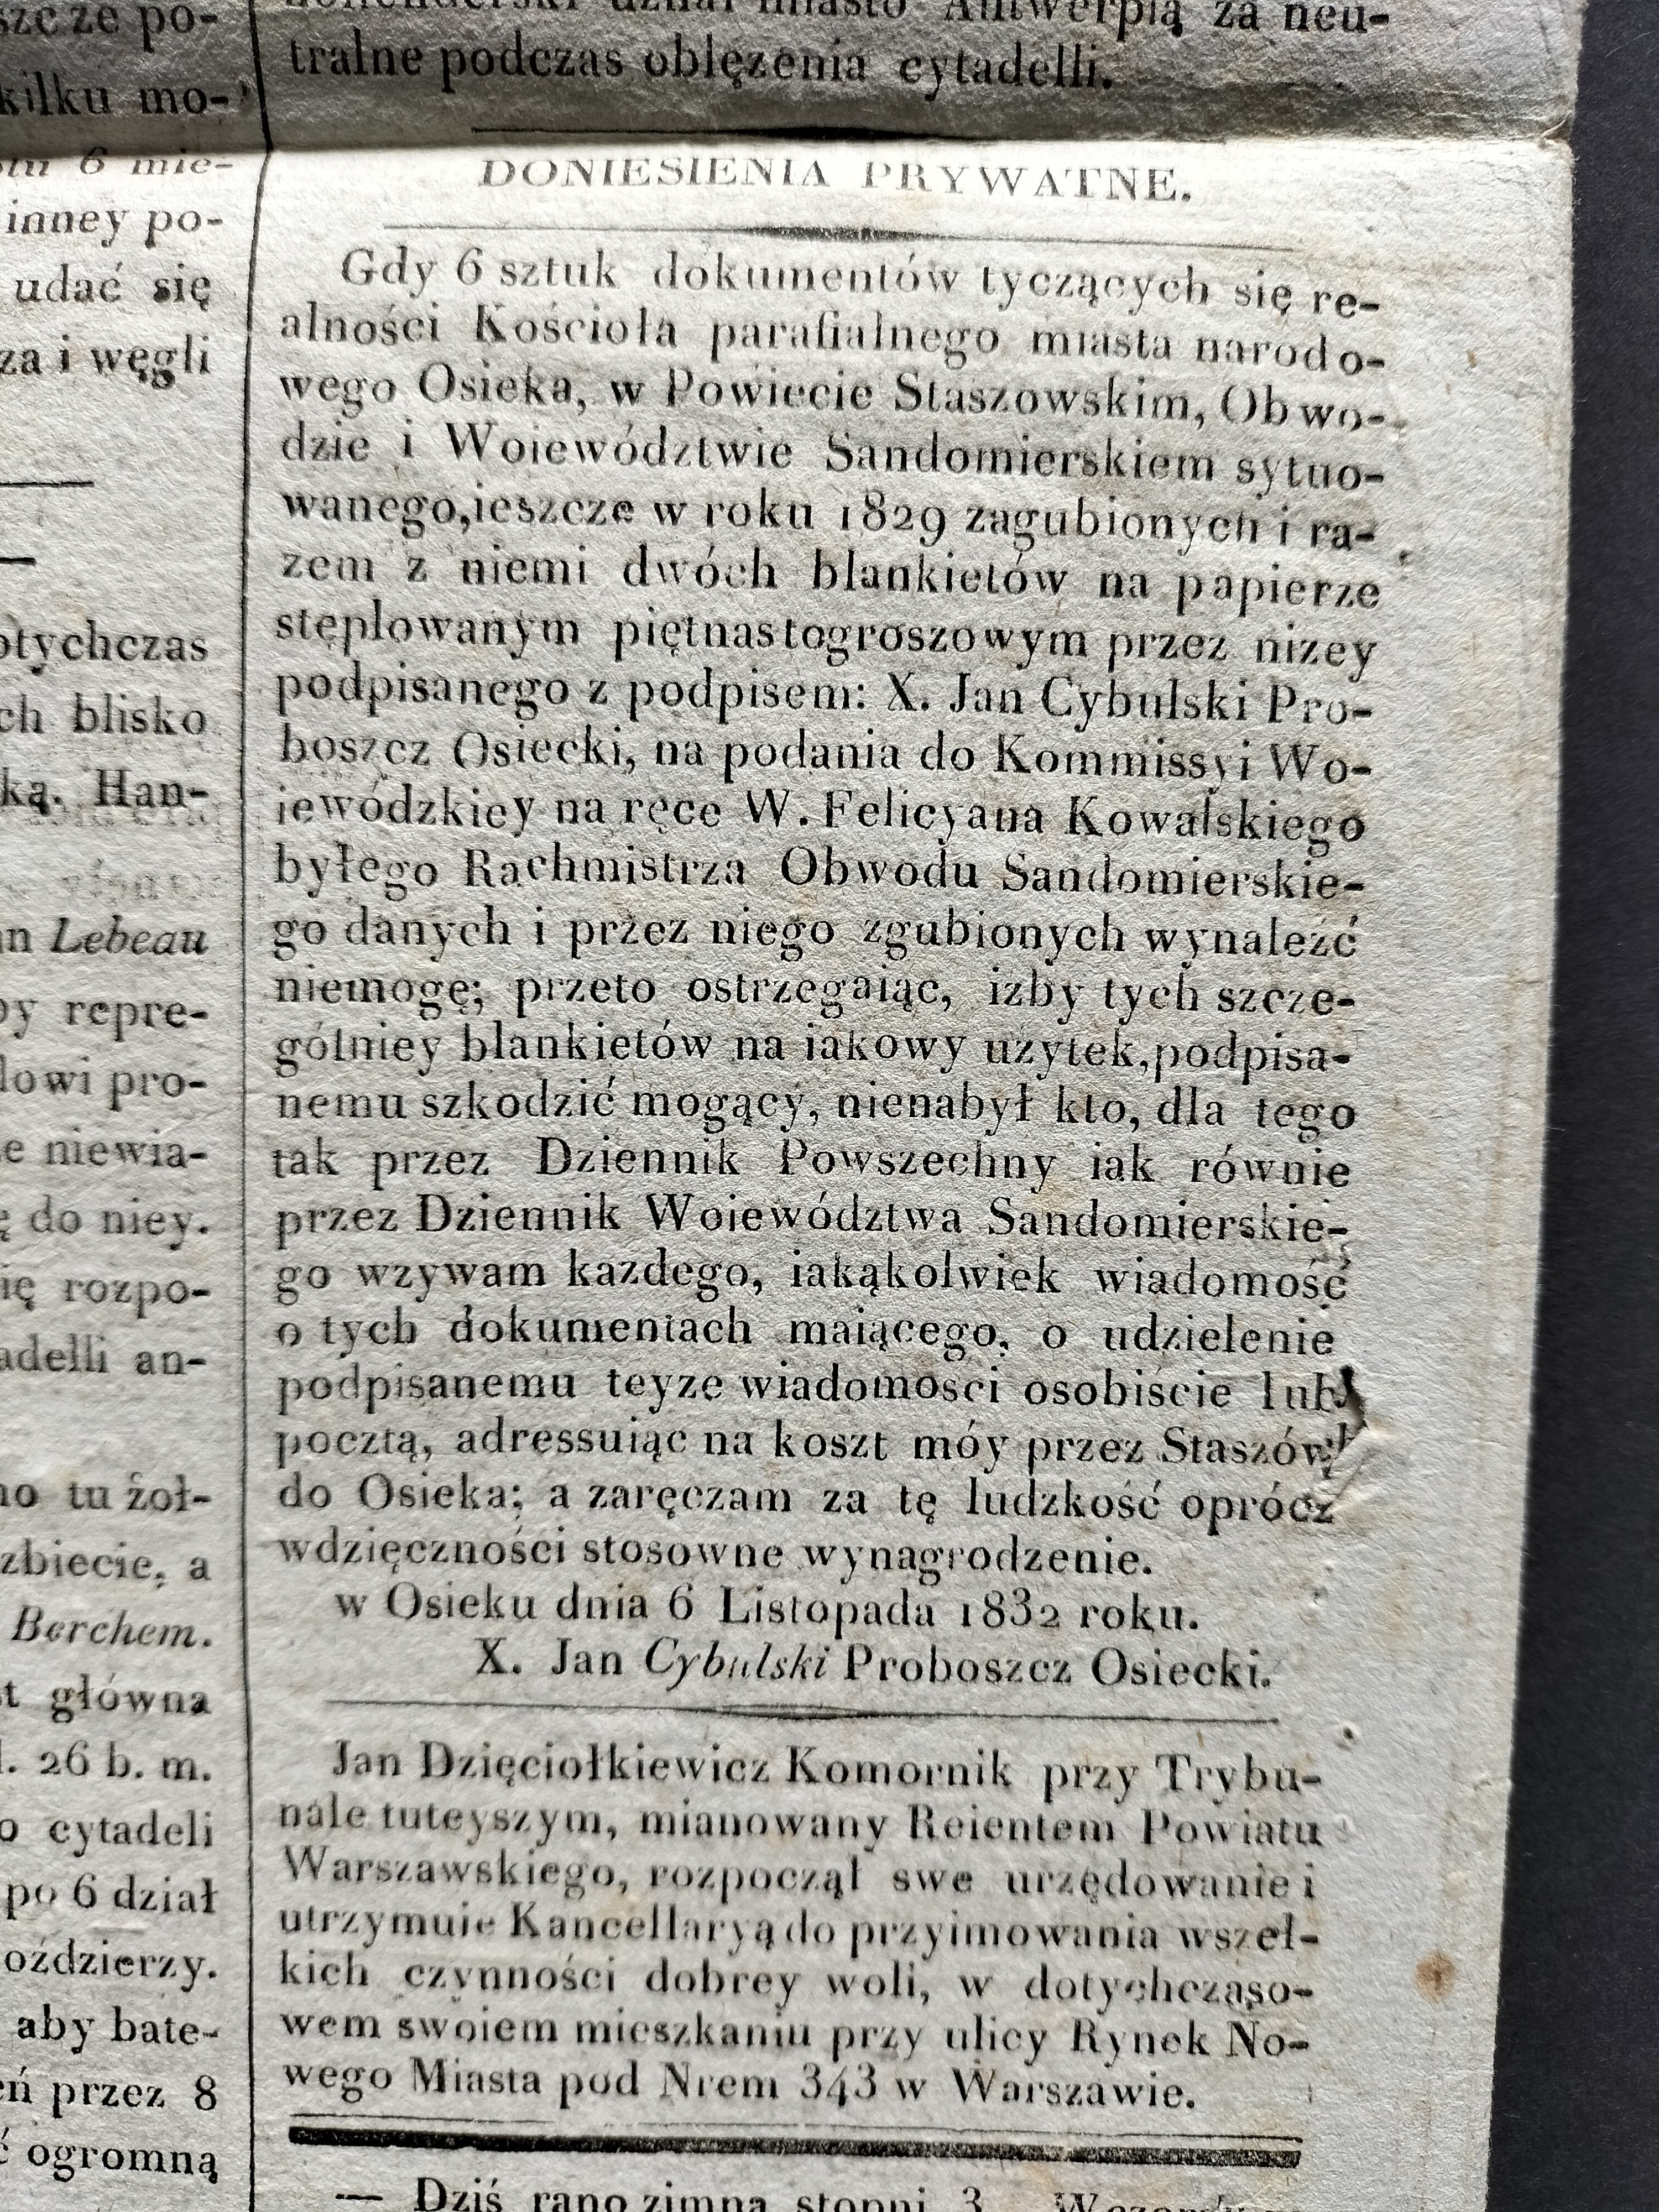 szcze po-
kilku mo-
6 mie-
inney po-
udać się
za i węgli
otychczas
ch blisko
ką. Han-
an Lebeau
by repre-
lowi pro-
e niewia-
ę do niey.
ię rozpo-
adelli an-
no tu żoł-
zbiecie, a
Berchem.
st główna
l. 26 b. m.
o cytadeli
po 6 dział
oździerzy.
aby bate-
eń przez 8
ć ogromną
uznał miasto Antwerpią za neu-
tralne podczas oblężenia cytadelli.
DONIESIENIA PRYWATNE.
Gdy 6 sztuk dokumentów tyczących się re-
alności Kościoła parafialnego miasta narodo-
wego Osieka, w Powiecie Staszowskim, Obwo-
dzie i Woiewództwie Sandomierskiem sytuo-
wanego, ieszcze w roku 1829 zagubionych i ra-
zem z niemi dwóch blankietów na papierze
steplowanym piętnastogroszowym przez nizey
podpisanego z podpisem: X. Jan Cybulski Pro-
boszcz Osiecki, na podania do Kommissyi Wo-
iewódzkiey na ręce W. Felicyana Kowalskiego
byłego Rachmistrza Obwodu Sandomierskie-
go danych i przez niego zgubionych wynaleźć
niemogę; przeto ostrzegaiąc, iżby tych szcze-
gólniey blankietów na iakowy użytek, podpisa-
nemu szkodzić mogący, nienabył kto, dla tego
tak przez Dziennik Powszechny iak równie
przez Dziennik Woiewództwa Sandomierskie-
go wzywam każdego, iakąkolwiek wiadomość
o tych dokumentach maiącego, o udzielenie
podpisanemu teyże wiadomości osobiście lub
pocztą, adressuiąc na koszt móy przez Staszów
do Osieka; a zaręczam za tę ludzkość oprócz
wdzięczności stosowne wynagrodzenie.
w Osieku dnia 6 Listopada 1832 roku.
X. Jan Cybulski Proboszcz Osiecki.
Jan Dzięciołkiewicz Komornik przy Trybu-
nale tuteyszym, mianowany Reientem Powiatu
Warszawskiego, rozpoczął swe urzędowanie i
utrzymuie Kancellaryą do przyimowania wszel-
kich czynności dobrey woli, w dotychczaso-
wem swoiem mieszkaniu przy ulicy Rynek No-
wego Miasta pod Nrem 343 w Warszawie.
— Dziś rano zimna stopni 3